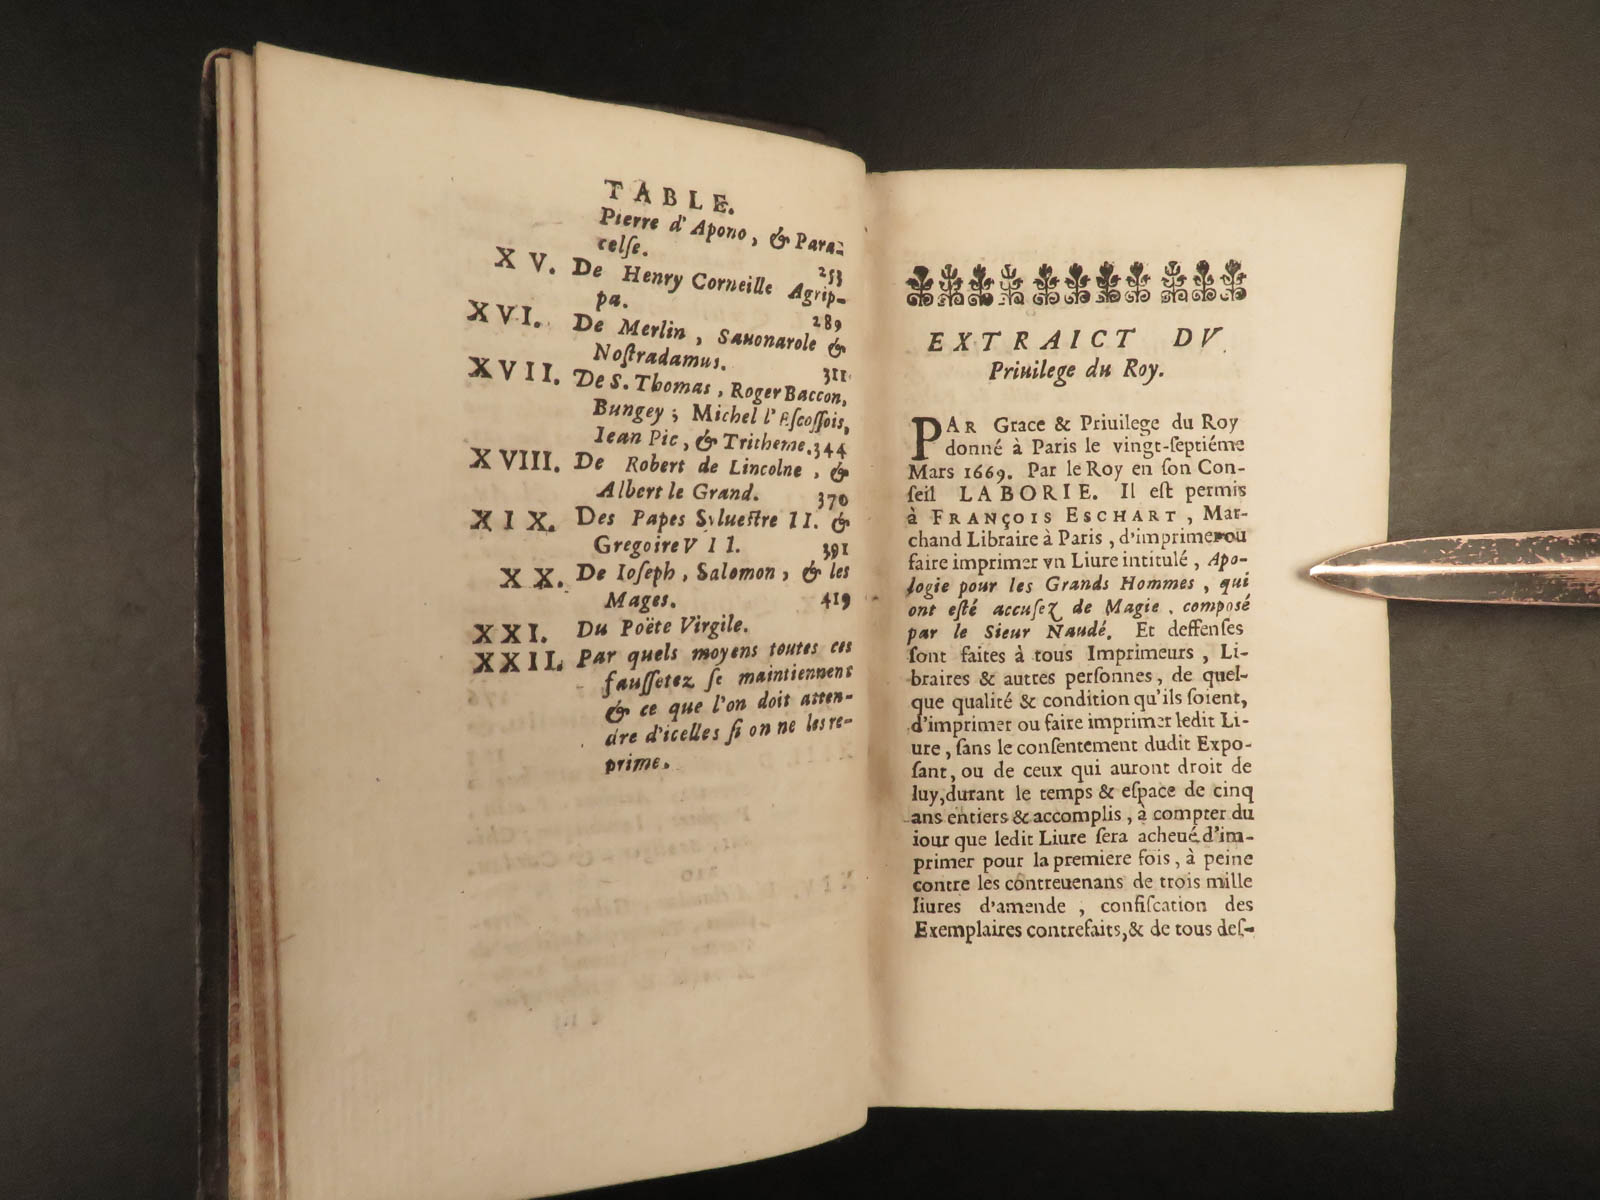 TABLE.
Pierre d'Apono, & Para-
celſe. 253
XV. De Henry Corneille Agrip-
pa. 289
XVI. De Merlin, Sauonarole &
Noſtradamus. 311
XVII. De S. Thomas, Roger Baccon,
Bungey; Michel l'Eſcoſſois,
Iean Pic, & Tritheme. 344
XVIII. De Robert de Lincolne, &
Albert le Grand. 370
XIX. Des Papes Sylueſtre II. &
Gregoire VII. 391
XX. De Ioſeph, Salomon, & les
Mages. 419
XXI. Du Poëte Virgile.
XXII. Par quels moyens toutes ces
fauſſetez ſe maintiennent
& ce que l'on doit atten-
dre d'icelles ſi on ne les re-
prime.
EXTRAICT DV
Priuilege du Roy.
PAR Grace & Priuilege du Roy
donné à Paris le vingt-ſeptiéme
Mars 1669. Par le Roy en ſon Con-
ſeil LABORIE. Il eſt permis
à FRANÇOIS ESCHART, Mar-
chand Libraire à Paris, d'imprimer ou
faire imprimer vn Liure intitulé, Apo-
logie pour les Grands Hommes, qui
ont eſté accuſez de Magie, composé
par le Sieur Naudé. Et deffenſes
ſont faites à tous Imprimeurs, Li-
braires & autres perſonnes, de quel-
que qualité & condition qu'ils ſoient,
d'imprimer ou faire imprimer ledit Li-
ure, ſans le conſentement dudit Expo-
ſant, ou de ceux qui auront droit de
luy, durant le temps & eſpace de cinq
ans entiers & accomplis, à compter du
iour que ledit Liure ſera acheué d'im-
primer pour la premiere fois, à peine
contre les contreuenans de trois mille
liures d'amende, confiſcation des
Exemplaires contrefaits, & de tous deſ-